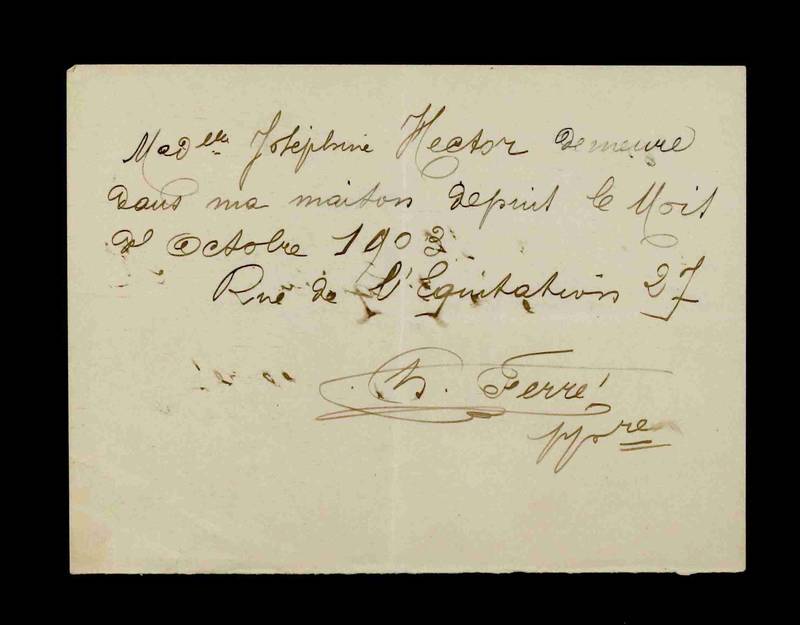 Mad elle Joséphine Hector demeure
dans ma maison depuis le Mois
d'Octobre 1903
Rue de l'Equitation 27
h. Ferré
ppre